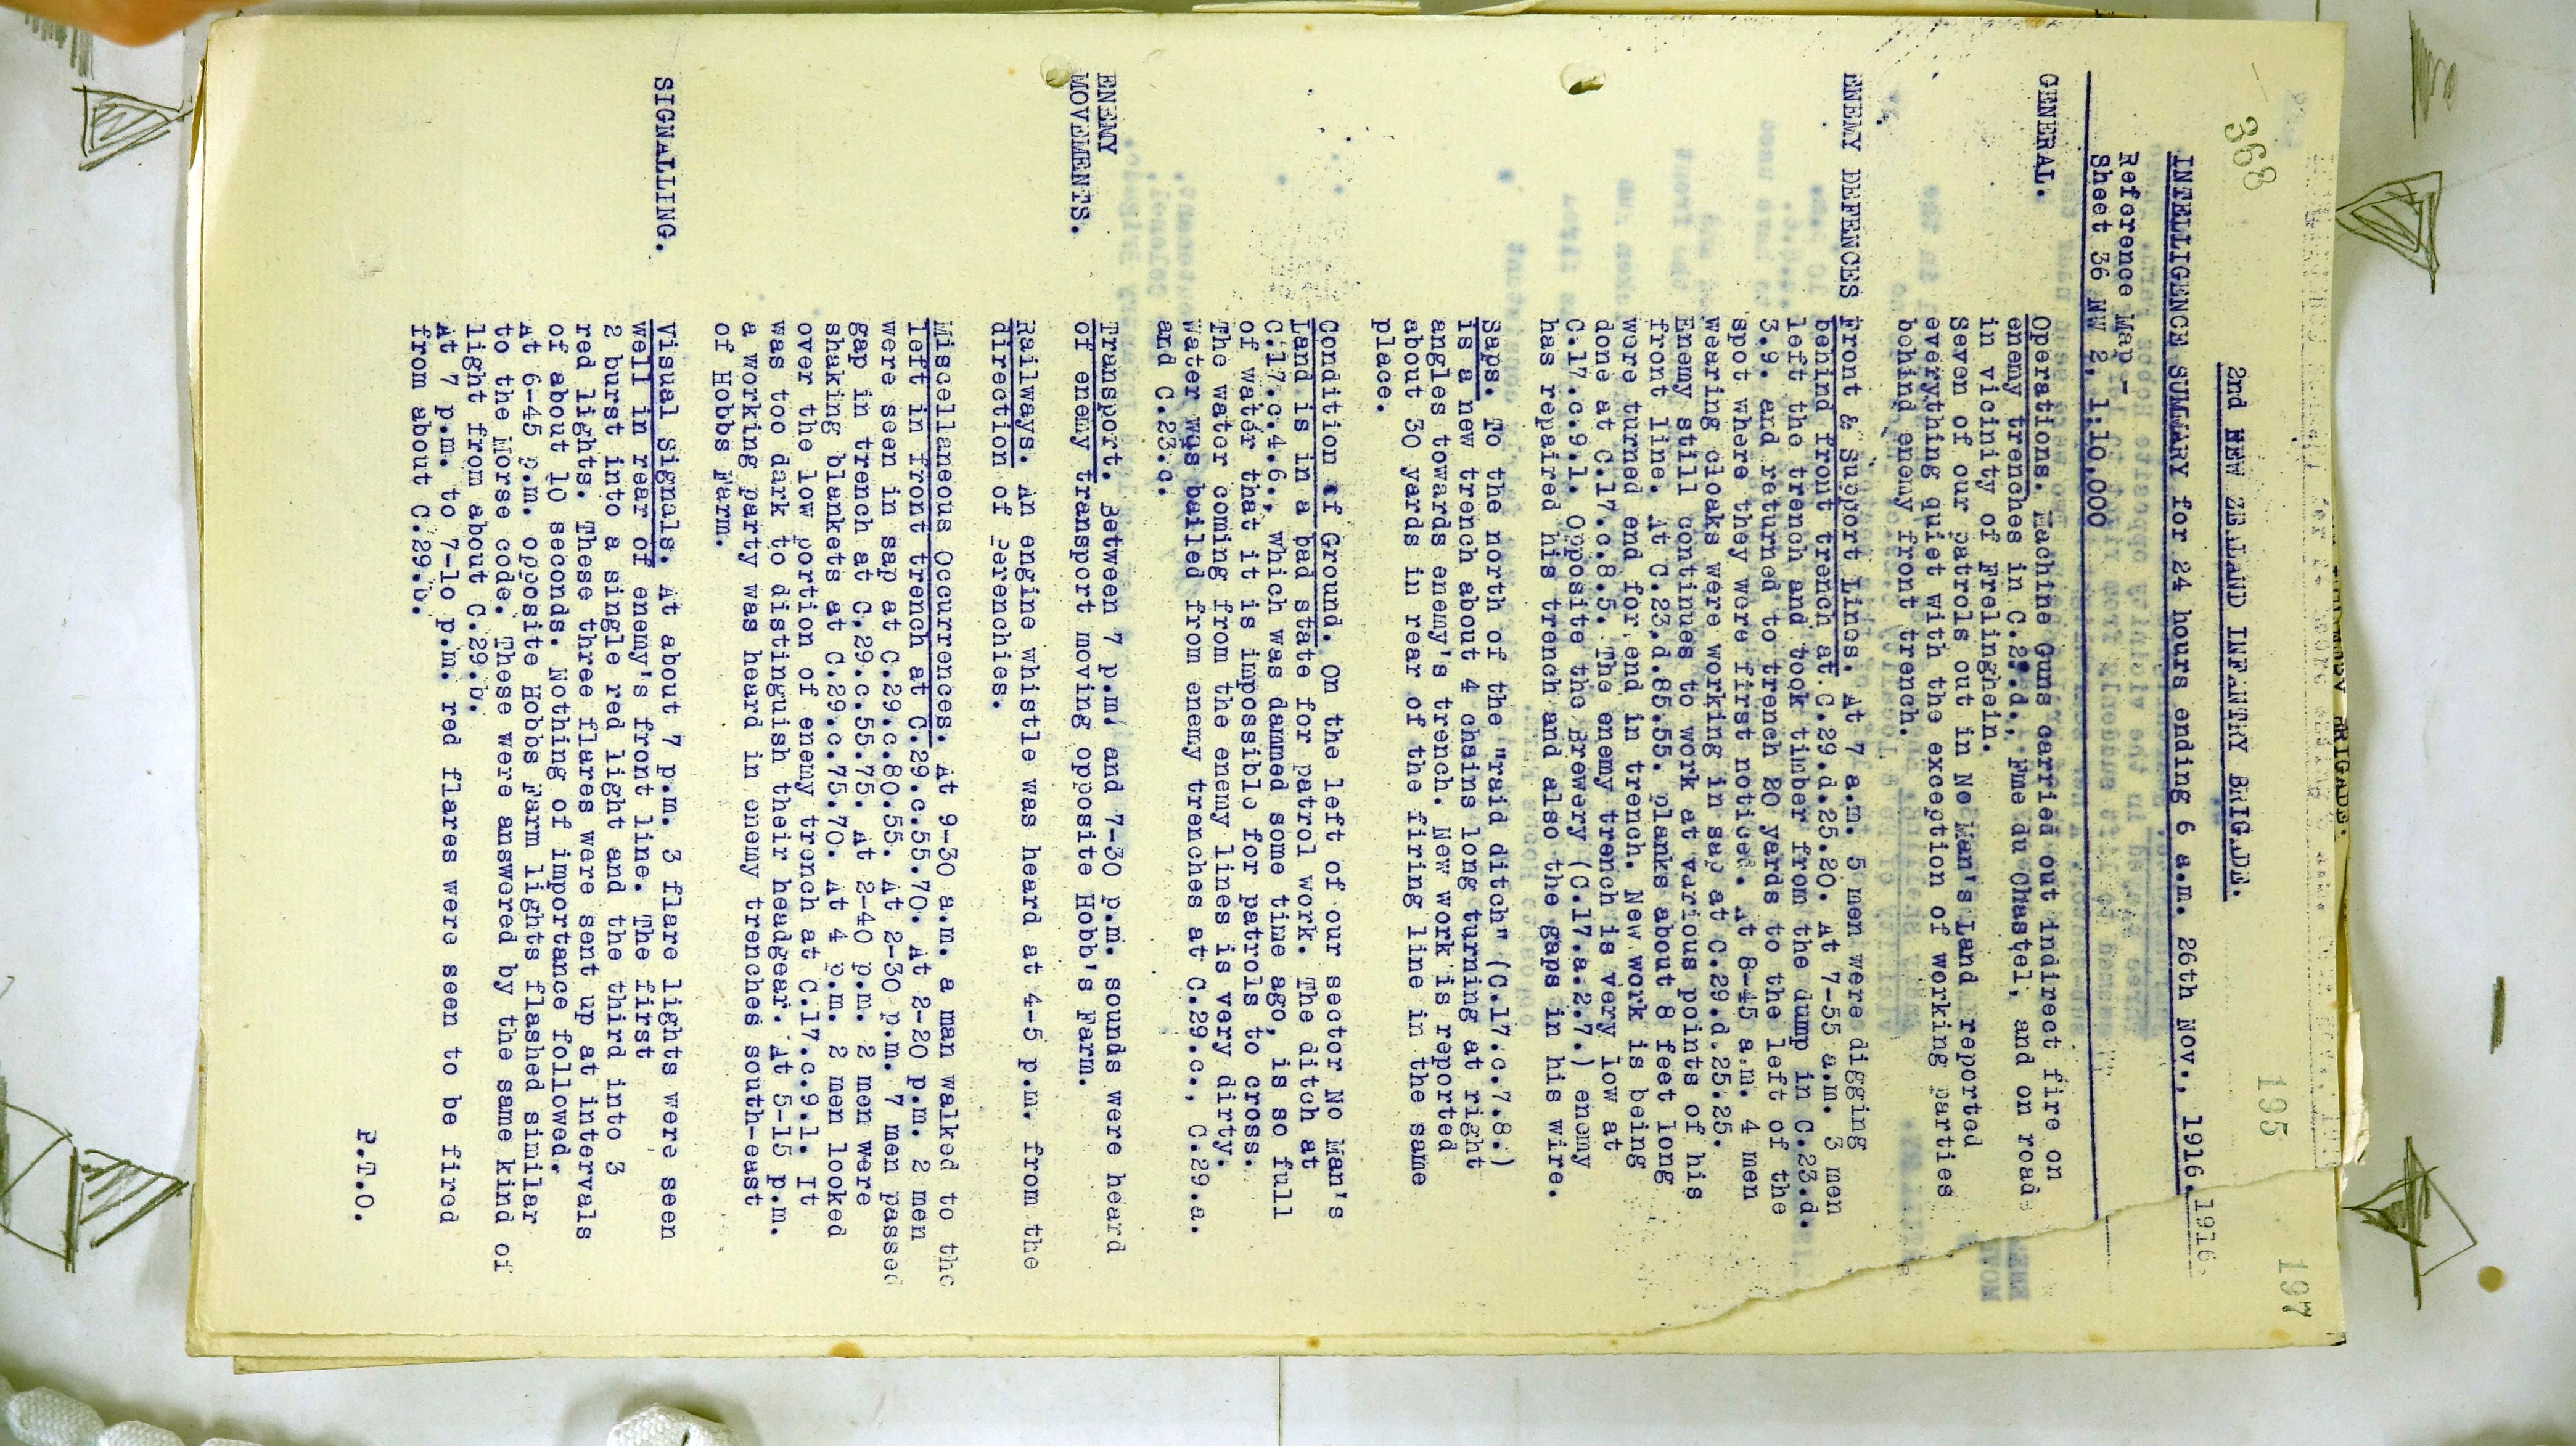 368
195
197
2nd NEW ZEALAND INFANTRY BRIGADE.
INTELLIGENCE SUMMARY for 24 hours ending 6 a.m. 26th Nov., 1916.
1916.
Reference Map -
Sheet 36 NW 2, 1:10,000
GENERAL.
Operations. Machine Guns carried out indirect fire on
enemy trenches in C.29.d., Fme du Chastel, and on road
in vicinity of Frelinghein.
Seven of our patrols out in No Man's Land reported
everything quiet with the exception of working parties
behind enemy front trench.
ENEMY DEFENCES
Front & Support Lines. At 7 a.m. 5 men were digging
behind front trench at C.29.d.25.20. At 7-55 a.m. 3 men
left the trench and took timber from the dump in C.23.d.
3.9. and returned to trench 20 yards to the left of the
spot where they were first noticed. At 8-45 a.m. 4 men
wearing cloaks were working in sap at C.29.d.25.25.
Enemy still continues to work at various points of his
front line. At C.23.d.85.55. planks about 8 feet long
were turned end for end in trench. New work is being
done at C.17.c.8.5. The enemy trench is very low at
C.17.c.9.1. Opposite the Brewery (C.17.a.2.7.) enemy
has repaired his trench and also the gaps in his wire.
Saps. To the north of the "raid ditch" (C.17.c.7.8.)
is a new trench about 4 chains long turning at right
angles towards enemy's trench. New work is reported
about 30 yards in rear of the firing line in the same
place.
Condition of Ground. On the left of our sector No Man's
Land is in a bad state for patrol work. The ditch at
C.17.c.4.6., which was dammed some time ago, is so full
of water that it is impossible for patrols to cross.
The water coming from the enemy lines is very dirty.
Water was bailed from enemy trenches at C.29.c., C.29.a.
and C.23.c.
ENEMY
MOVEMENTS.
Transport. Between 7 p.m. and 7-30 p.m. sounds were heard
of enemy transport moving opposite Hobb's Farm.
Railways. An engine whistle was heard at 4-5 p.m. from the
direction of Perenchies.
Miscellaneous Occurrences. At 9-30 a.m. a man walked to the
left in front trench at C.29.c.55.70. At 2-20 p.m. 2 men
were seen in sap at C.29.c.80.55. At 2-30 p.m. 7 men passed
gap in trench at C.29.c.55.75. At 2-40 p.m. 2 men were
shaking blankets at C.29.c.75.70. At 4 p.m. 2 men looked
over the low portion of enemy trench at C.17.c.9.1. It
was too dark to distinguish their headgear. At 5-15 p.m.
a working party was heard in enemy trenches south-east
of Hobbs Farm.
SIGNALLING.
Visual Signals. At about 7 p.m. 3 flare lights were seen
well in rear of enemy's front line. The first
2 burst into a single red light and the third into 3
red lights. These three flares were sent up at intervals
of about 10 seconds. Nothing of importance followed.
At 6-45 p.m. opposite Hobbs Farm lights flashed similar
to the Morse code. These were answered by the same kind of
light from about C.29.b.
At 7 p.m. to 7-10 p.m. red flares were seen to be fired
from about C.29.b.
P.T.O.